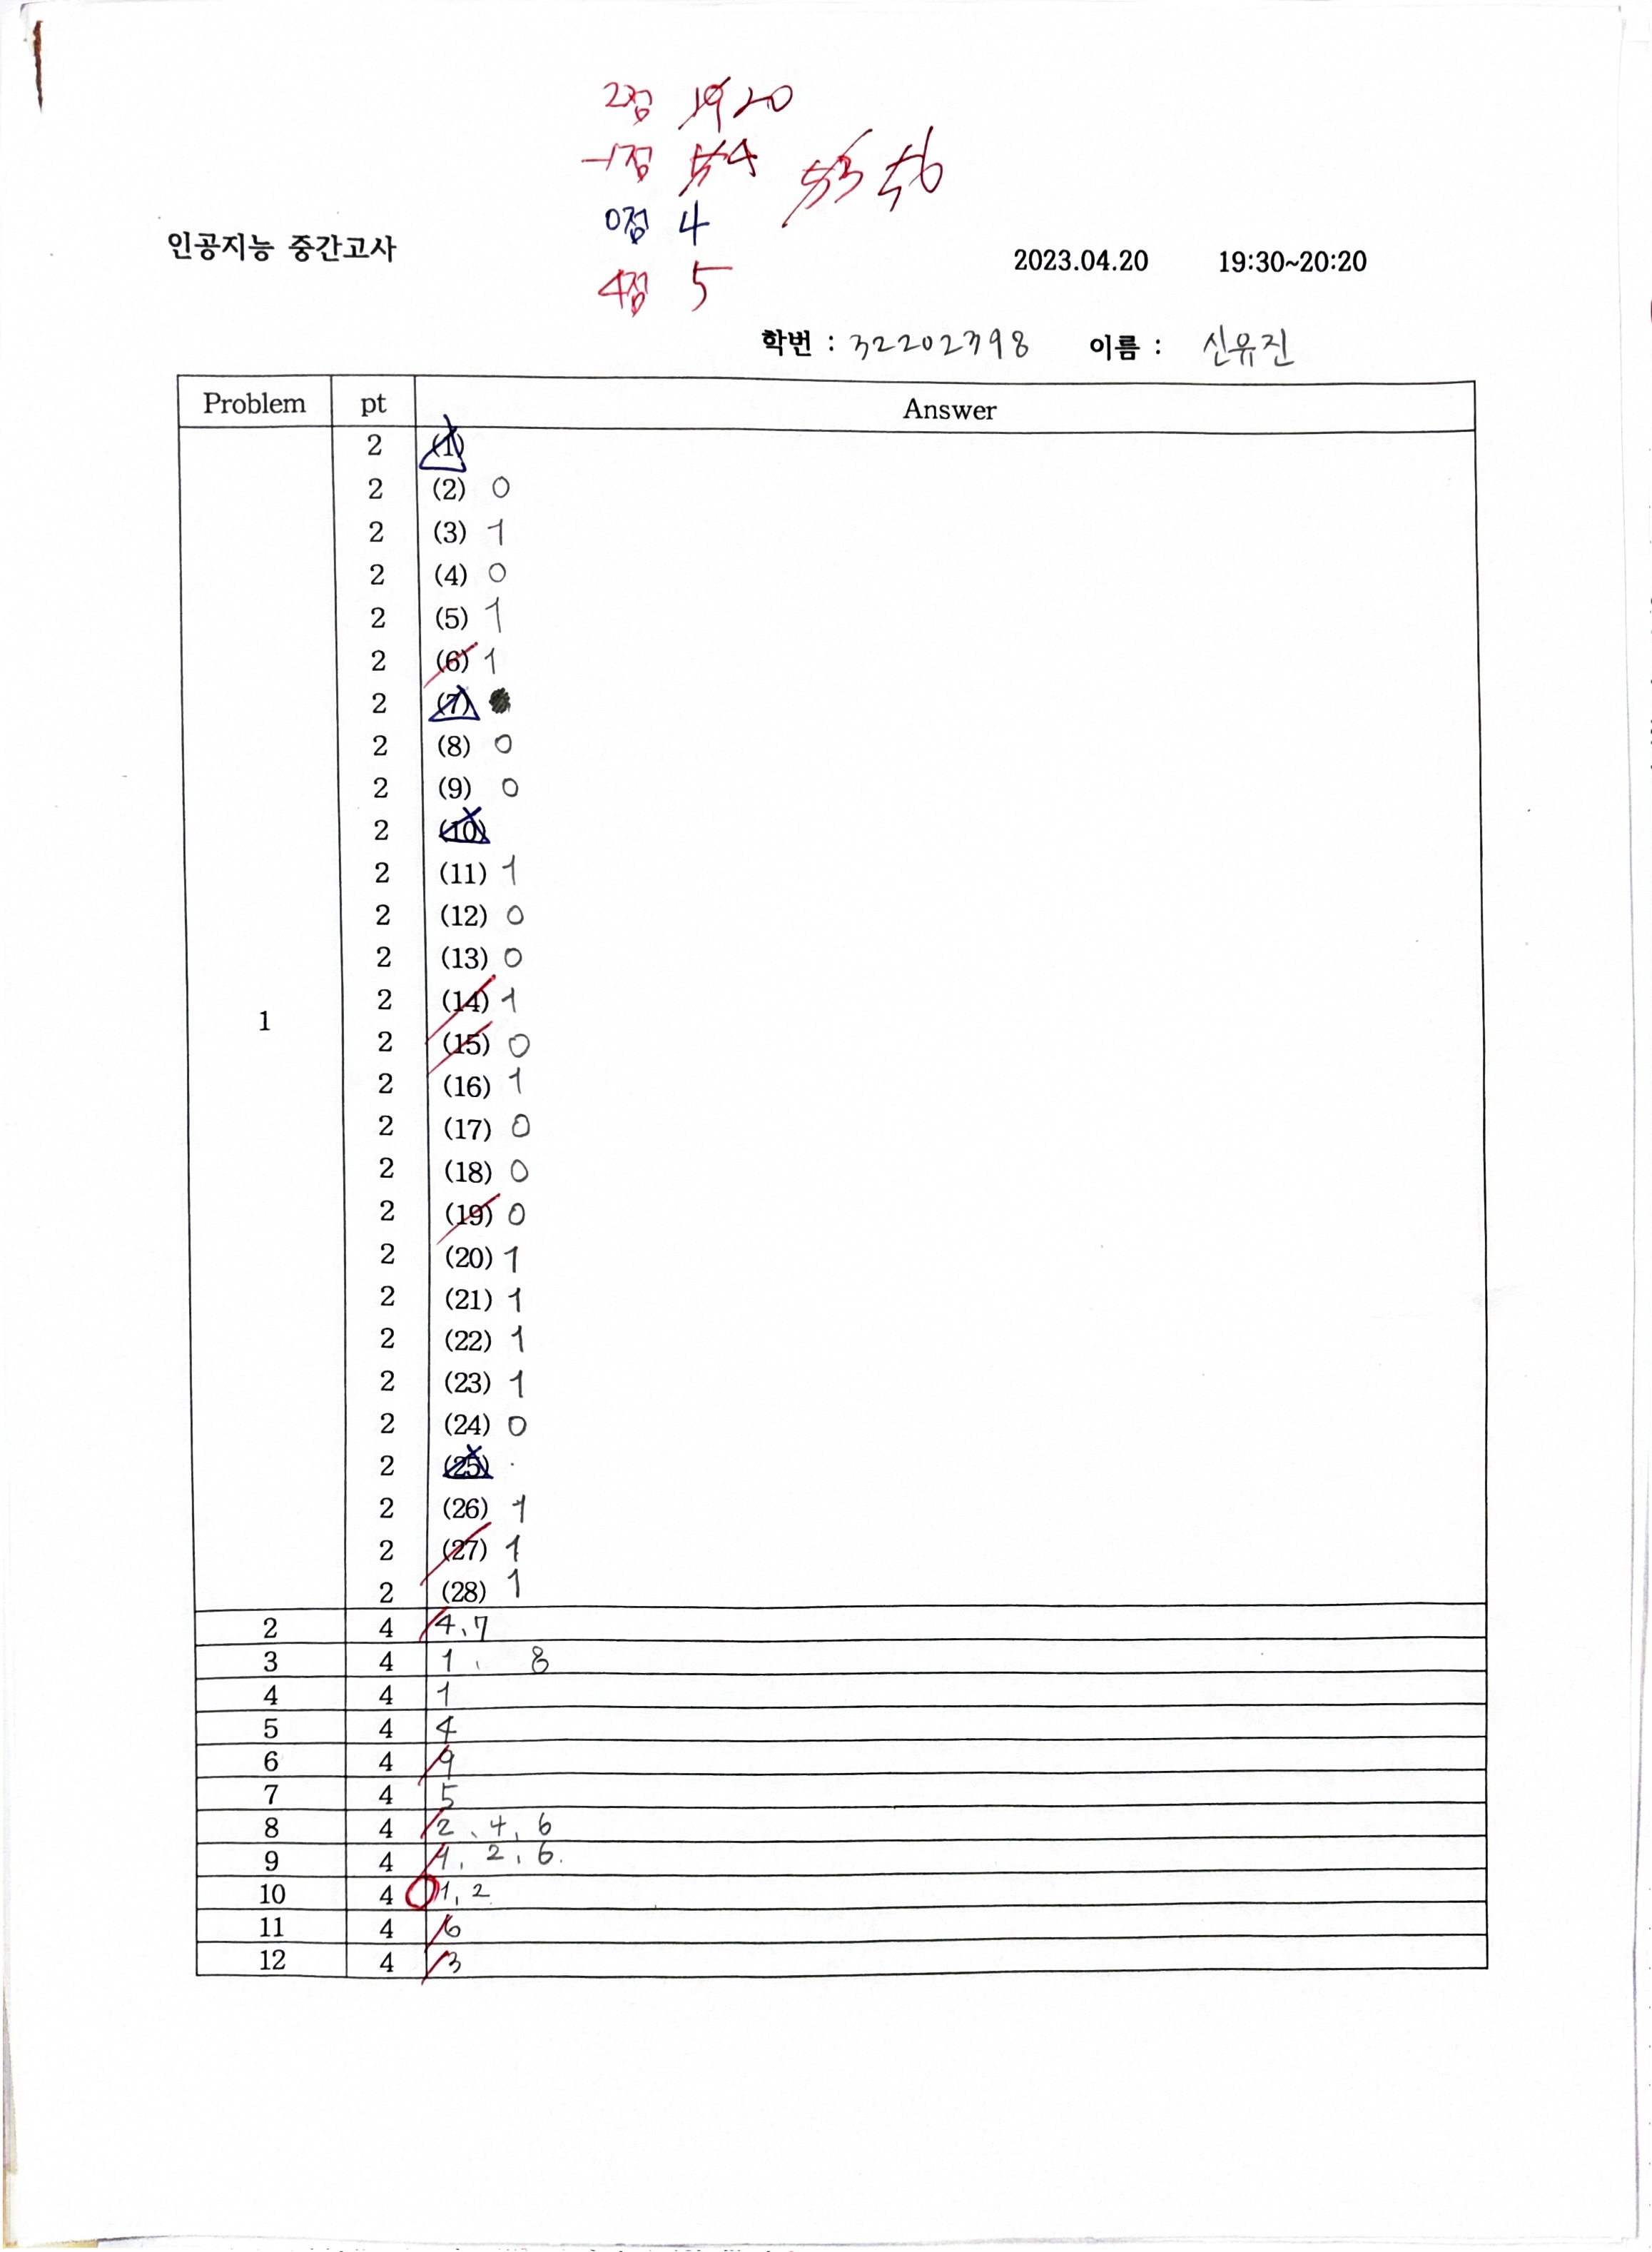 2점 19 20
-1점 5 4 53 56
0점 4
4점 5
인공지능 중간고사 2023.04.20 19:30~20:20
학번 : 32202398 이름 : 신유진
Problem pt Answer
2 (1)
2 (2) 0
2 (3) 1
2 (4) 0
2 (5) 1
2 (6) 1
2 (7)
2 (8) 0
2 (9) 0
2 (10)
2 (11) 1
2 (12) 0
2 (13) 0
2 (14) 1
1
2 (15) 0
2 (16) 1
2 (17) 0
2 (18) 0
2 (19) 0
2 (20) 1
2 (21) 1
2 (22) 1
2 (23) 1
2 (24) 0
2 (25)
2 (26) 1
2 (27) 1
2 (28) 1
2 4 4, 7
3 4 1, 8
4 4 1
5 4 4
6 4 9
7 4 5
8 4 2, 4, 6
9 4 1, 2, 6.
10 4 1, 2
11 4 6
12 4 3